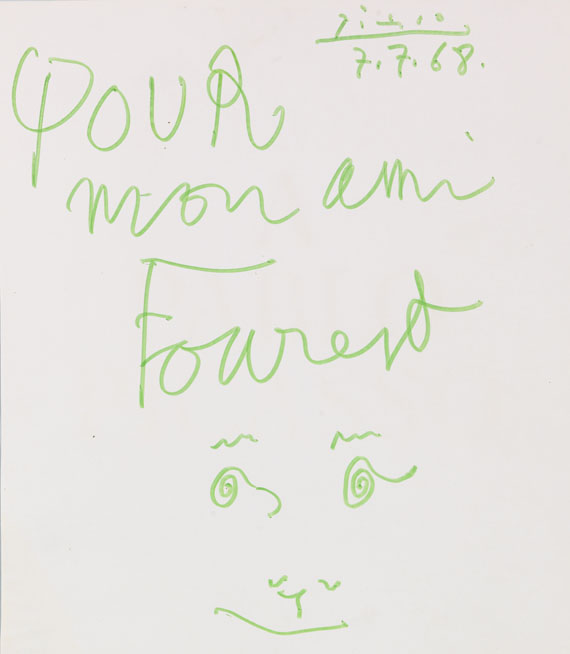 7.7.68.
POUR
mon ami
Fourest